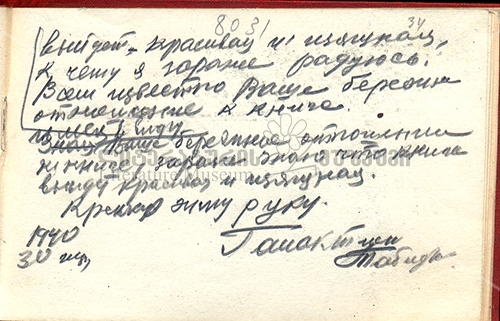 8031
34
выйдет красивая и изящная,
к чему я заранее радуюсь.
Всем известно Ваше бережн
отношение к книге.
имея в виду
Зная Ваше бережное отношение
к книге заранее знаю что книга
выйду красивая и изящная.
Крепко жму руку.
1940
30
Галактион
Табидзе
Literature Museum